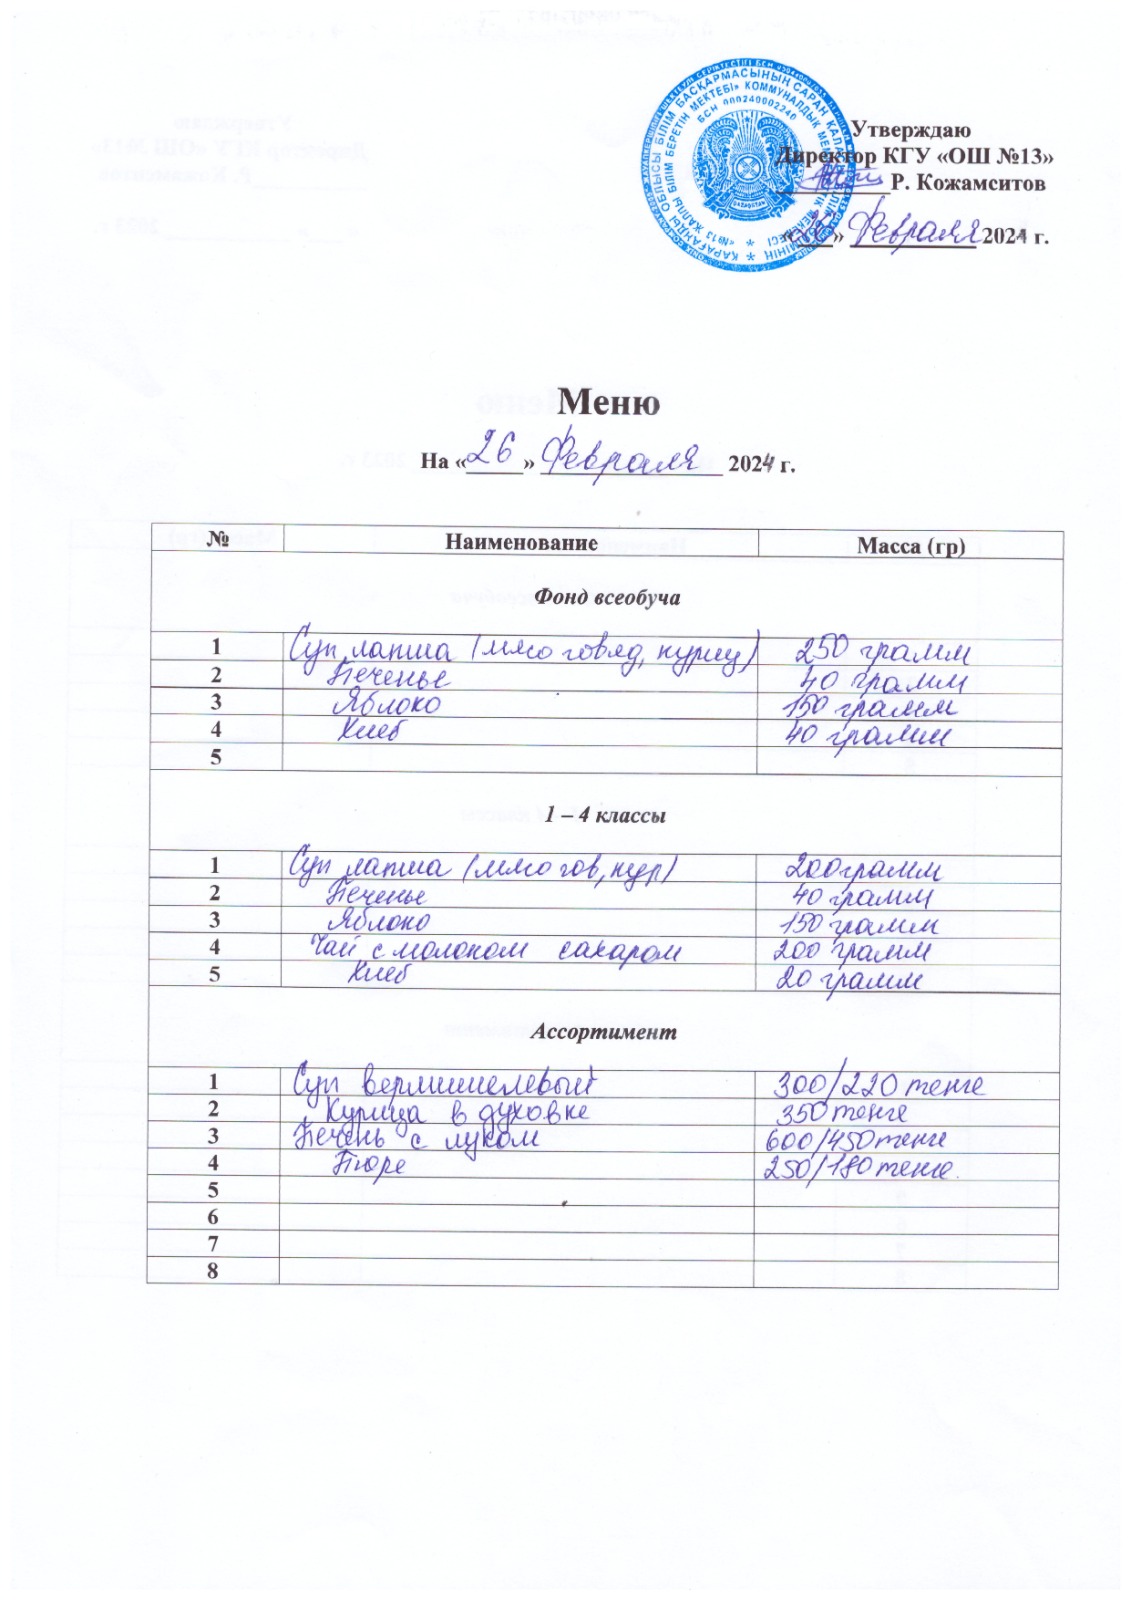 Утверждаю
Директор КГУ «ОШ №13»
Р. Кожамситов
«26» Февраля 2024 г.
БСН 000240002240
ҚАЗАҚСТАН
Меню
На «26» Февраля 2024 г.
№ Наименование Масса (гр)
Фонд всеобуча
1 Суп лапша (мясо говяд, куриц) 250 грамм
2 Печенье 40 грамм
3 Яблоко 150 грамм
4 Хлеб 40 грамм
5
1 – 4 классы
1 Суп лапша (мясо гов, кур) 200 грамм
2 Печенье 40 грамм
3 Яблоко 150 грамм
4 Чай с молоком сахаром 200 грамм
5 Хлеб 20 грамм
Ассортимент
1 Суп вермишелевый 300/220 тенге
2 Курица в духовке 350 тенге
3 Печень с луком 600/450 тенге
4 Пюре 250/180 тенге.
5
6
7
8